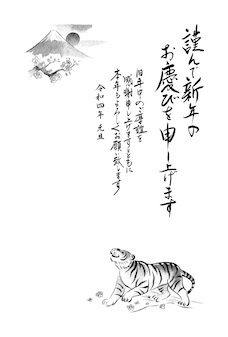 謹んで新年の
お慶びを申し上げます
旧年中のご厚誼を
感謝申し上げますとともに
本年もよろしくお願い致します
令和四年 元旦